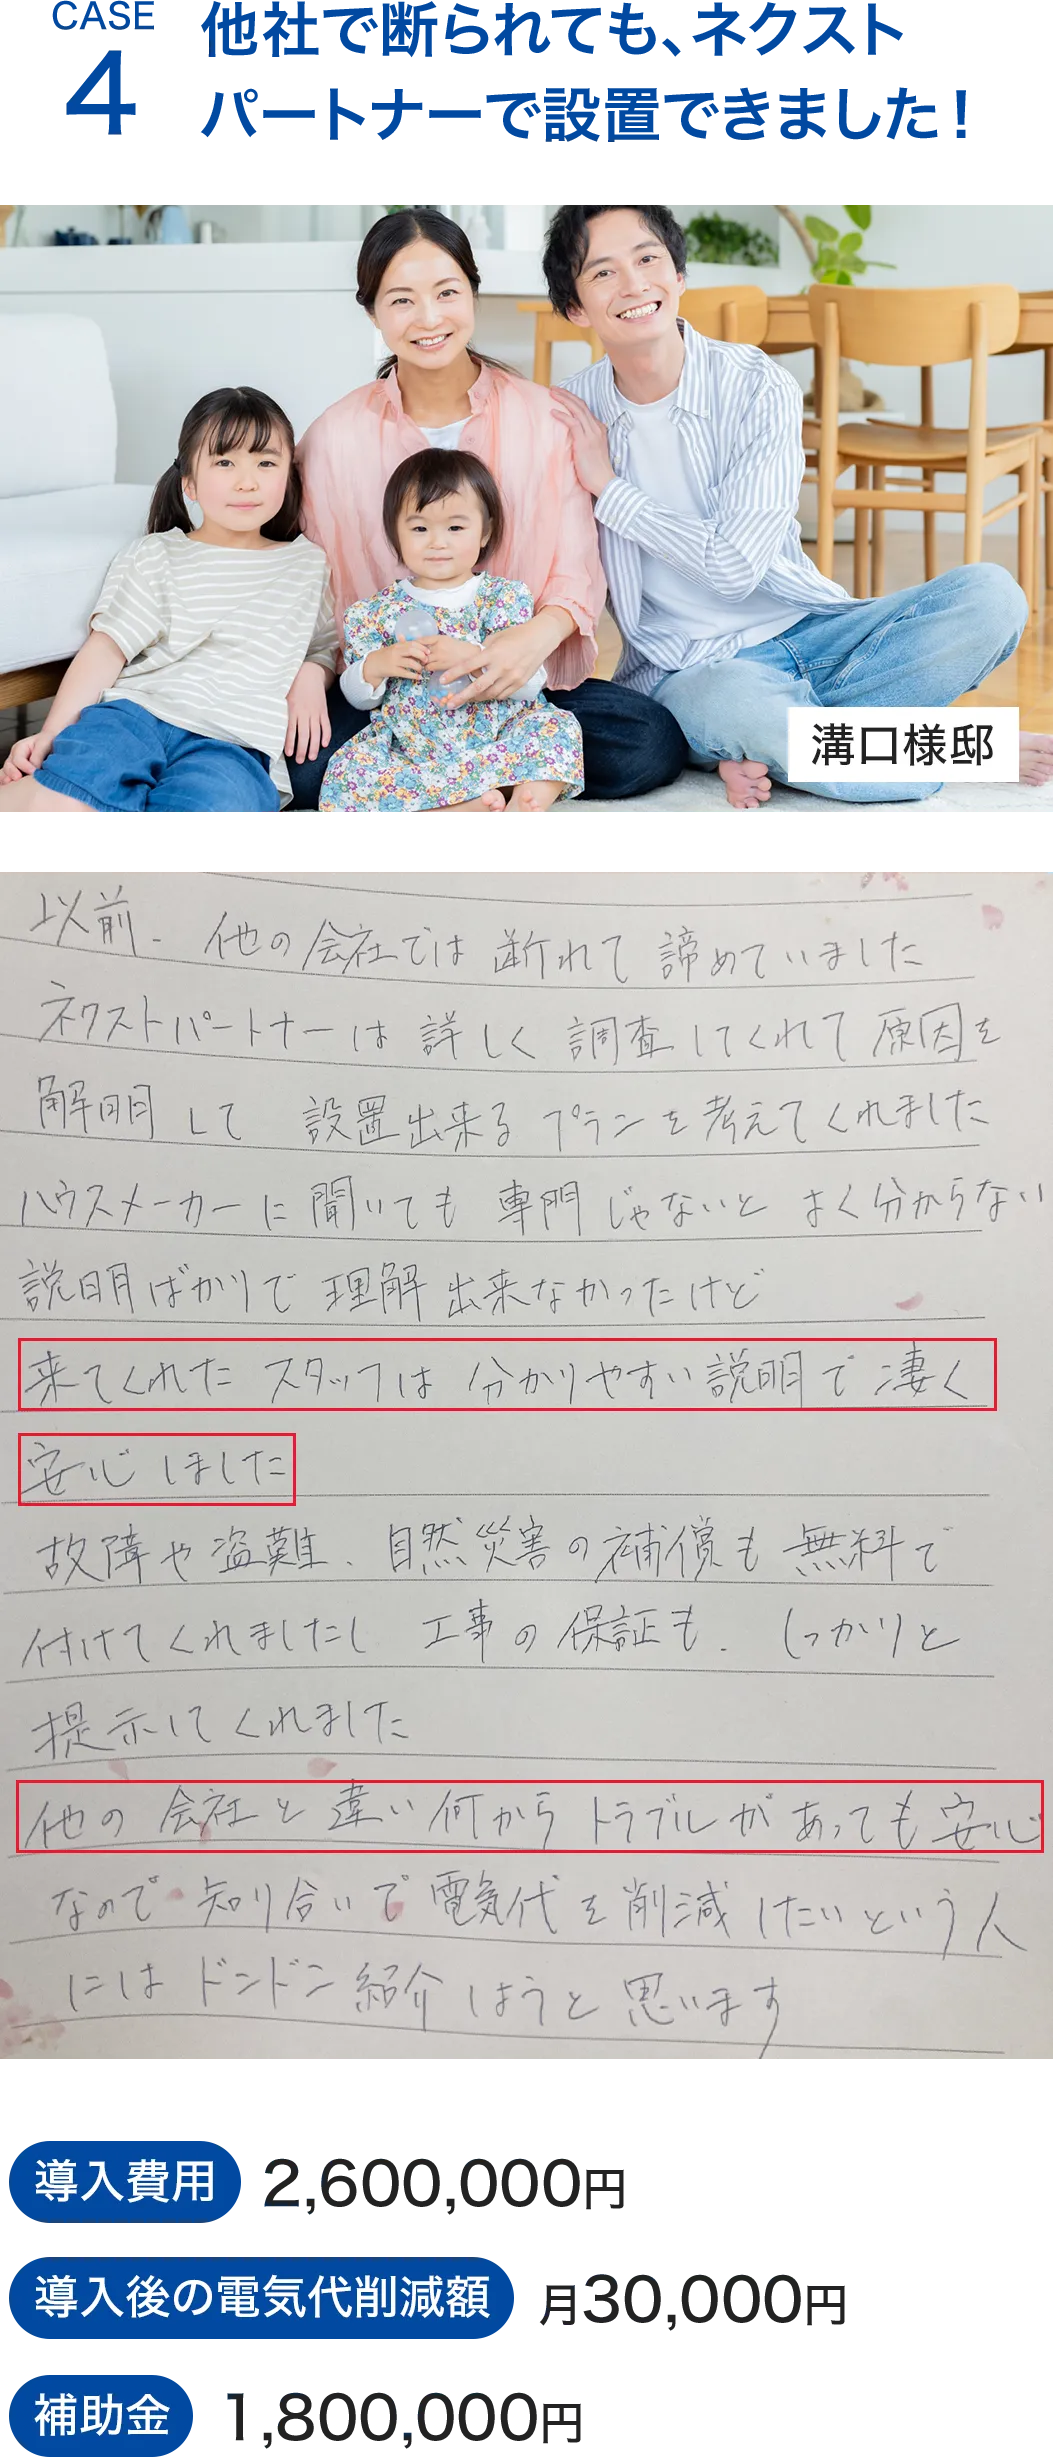 CASE
4
他社で断られても、ネクスト
パートナーで設置できました！
溝口様邸
以前、他の会社では断れて諦めていました
ネクストパートナーは詳しく調査してくれて原因を
解明して 設置出来るプランを考えてくれました
ハウスメーカーに聞いても専門じゃないとよく分からない
説明ばかりで理解出来なかったけど
来てくれたスタッフは分かりやすい説明で凄く
安心しました
故障や盗難、自然災害の補償も無料で
付けてくれましたし 工事の保証も、しっかりと
提示してくれました
他の会社と違い何からトラブルがあっても安心
なので知り合いで電気代を削減したいという人
にはドンドン紹介しようと思います
導入費用 2,600,000円
導入後の電気代削減額 月30,000円
補助金 1,800,000円